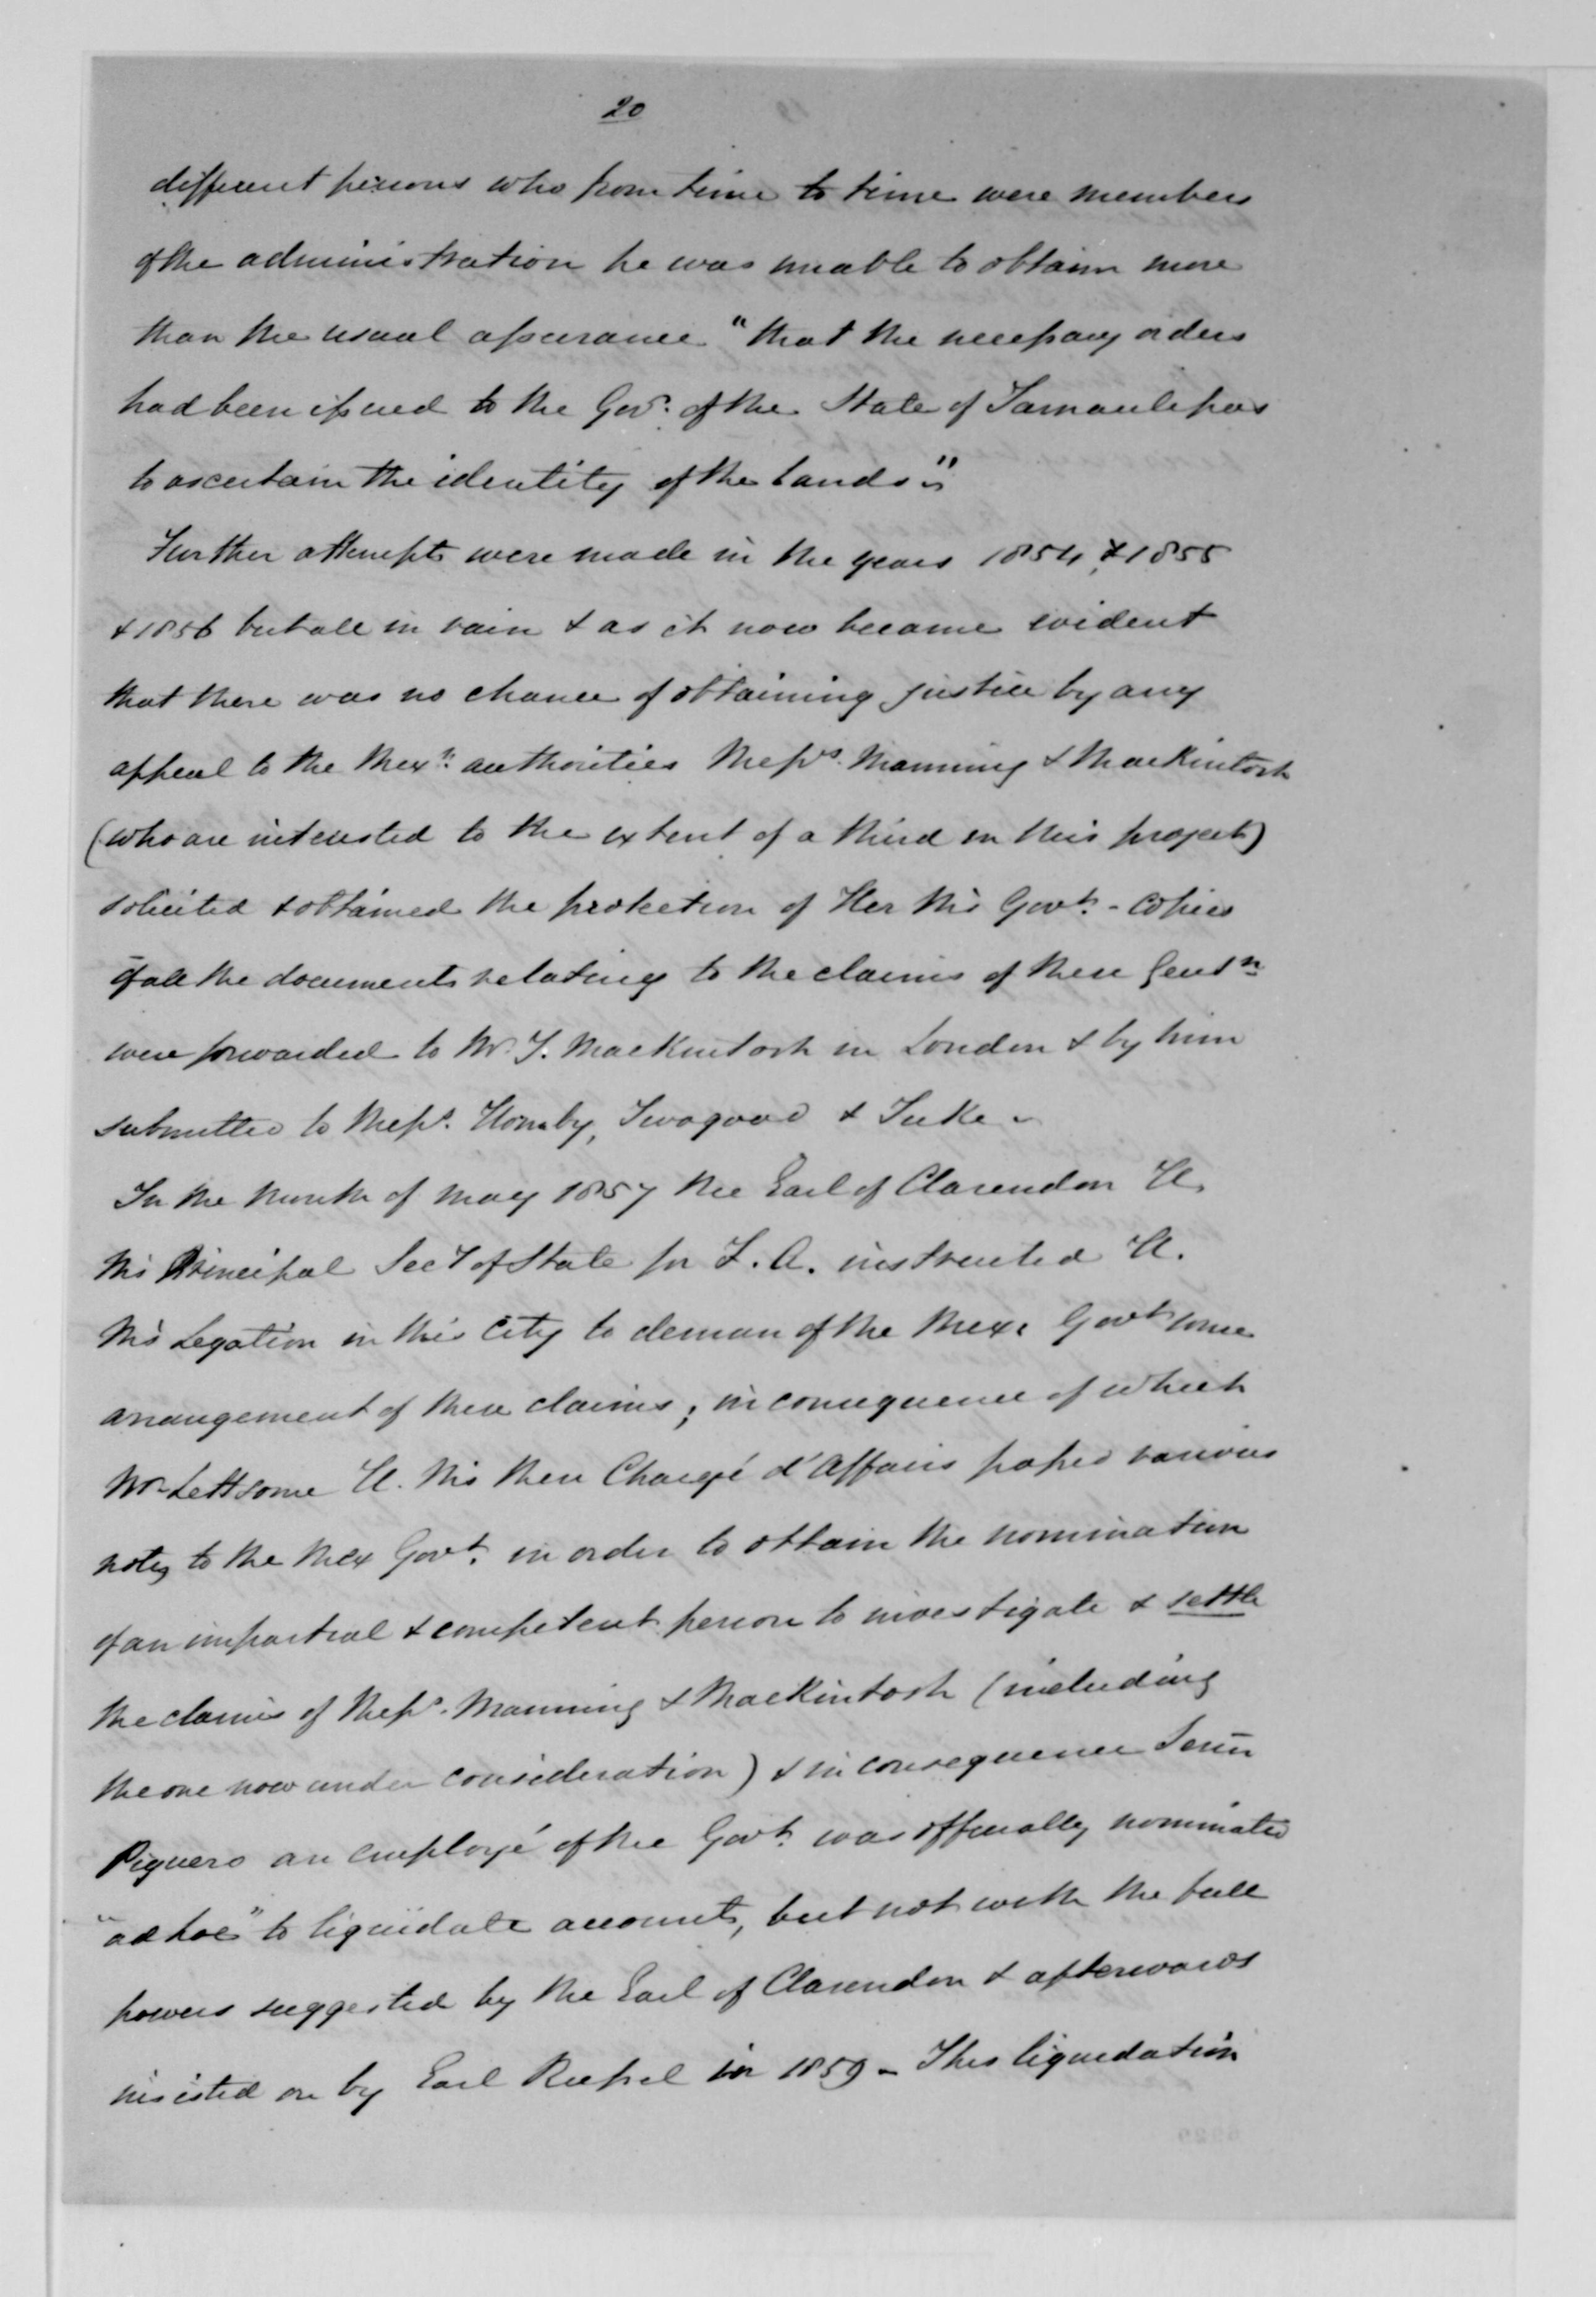 20
different persons who from time to time were members
of the administration he was unable to obtain more
than the usual assurance "that the necessary orders
had been issued to the Govr. of the State of Tamaulipas
to ascertain the identity of the lands"
Further attempts were made in the years 1854, & 1855
& 1856 but all in vain & as it now became evident
that there was no chance of obtaining justice by any
appeal to the Mexn. authorities Messrs. Manning & Mackintosh
(who are interested to the extent of a third in this project)
solicited & obtained the protection of Her M's Govt. - Copies
of all the documents relating to the claims of these Gentn.
were forwarded to Mr. J. Mackintosh in London & by him
submitted to Messs. Hornby, Twogood & Tuke -
In the month of May 1857 the Earl of Clarendon H.
M's Principal Secy of State for F. A. instructed H.
M's Legation in this City to deman of the Mex. Govt some
arrangement of these claims; in consequence of which
Mr. Lettsome H. M's then Chargé d'Affairs passed various
notes to the Mex Govt. in order to obtain the nomination
of an impartial & competent person to investigate & settle
the claims of Messs. Manning & Mackintosh (including
the one now under consideration) & in consequence Senr
Piquero an employé of the Govt. was officially nominated
"ad hoc" to liquidate accounts, but not with the full
powers suggested by the Earl of Clarendon & afterwards
insisted on by Earl Russel in 1859 - This liquidation